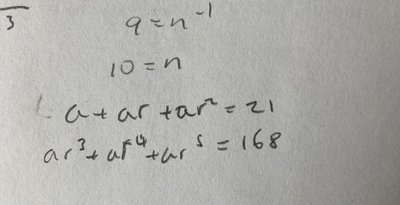 3
9 = n⁻¹
10 = n
a + ar + ar² = 21
ar³ + ar⁴ + ar⁵ = 168